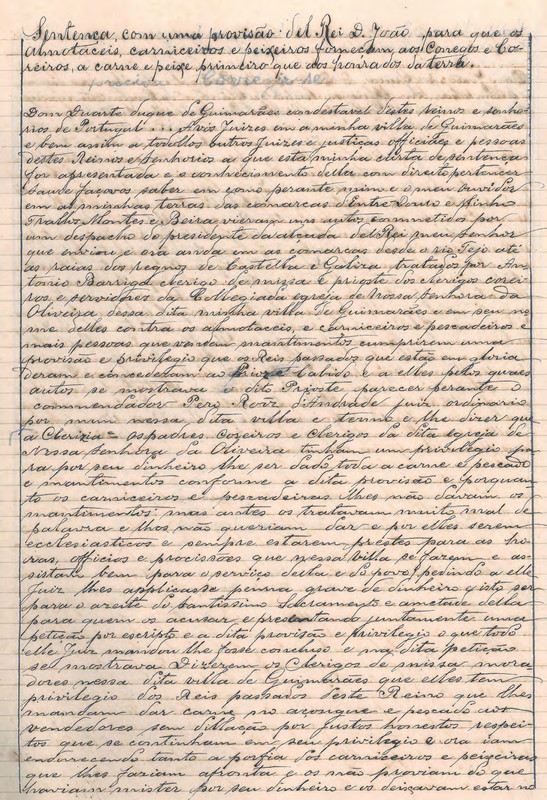 Sentença, com uma provisão del Rei D. João para que os
Almotaceis, carniceiros e peixeiros forneçam, aos Conegos e Co-
reiros, a carne e peixe primeiro que aos honrados da terra.
Dom Duarte duque de Guimarães condestavel destes reinos e senho-
rios de Portugal ... A vós Juizes em a minha villa de Guimarães
e bem assim a todollos outros Juizes e justiças officiaes e pessoas
destes Reinos e senhorios a que esta minha carta de sentença
for apresentada e o conhecimento della com direito pertencer
saude faço vos saber em como perante mim e o meu ouvidor
em as minhas terras das comarcas d'Entre Douro e Minho
Trallos Montes e Beira vieram uns autos commetidos por
um despacho do presidente da alçada del Rei meu senhor
que enviou e ora anda em as comarcas desde o rio Tejo até
as raias dos regnos de Castella e Galiza tratados por An-
tonio Barriga clerigo de missa e prioste dos clerigos corei-
ros e servidores da Collegiada egreja de Nossa Senhora da
Oliveira dessa dita minha villa de Guimarães e em seu no-
me delles contra os almotaceis, e carniceiros e pescadeiros e
mais pessoas que vendam mantimentos cumprirem uma
provisão e privilegio que os Reis passados que estão em gloria
deram e concederam ao Cabido e a elles pelos quaes
autos se mostrava o dito Prioste parecer perante o
commendador Pero Roiz d'Andrade juiz ordinario
por mim nessa dita villa e termo e lhe dizer que
a Cleresia os padres Coreiros e Clerigos da dita egreja de
Nossa Senhora da Oliveira tinham um privilegio pa-
ra por seu dinheiro lhe ser dado toda a carne e pescado
e mantimentos conforme a dita provisão e porquan-
to os carniceiros e pescadeiras lhes não davam os
mantimentos mas antes os tratavam muito mal de
palavra e lhos não queriam dar e por elles serem
ecclesiasticos e sempre estarem prestes para as
officios e procissões que nessa villa se fazem e as-
sistam bem para o serviço della e do povo, pedindo a elle
Juiz lhes applicasse penna grave de dinheiro e isto ser
para o azeite do Santissimo Sacramento e ametade della
para quem os acusar e presentando juntamente uma
petição por escripto e a dita provisão e privilegio o que todo
elle Juiz mandou lhe fosse concluso e na dita petição
se mostrava Dizerem os Clerigos de missa mora-
dores nessa dita villa de Guimarães que elles tem
privilegio dos Reis passados deste Reino que lhes
mandam dar carne no açougue e pescado aos
vendedores sem dillação por justos honestos respei-
tos que se continham em seu privilegio e ora iam
endurecendo tanto a porfia dos carniceiros e peixeiras
que lhes faziam afronta e os não proviam do que
haviam mister por seu dinheiro e os deixavam estar no